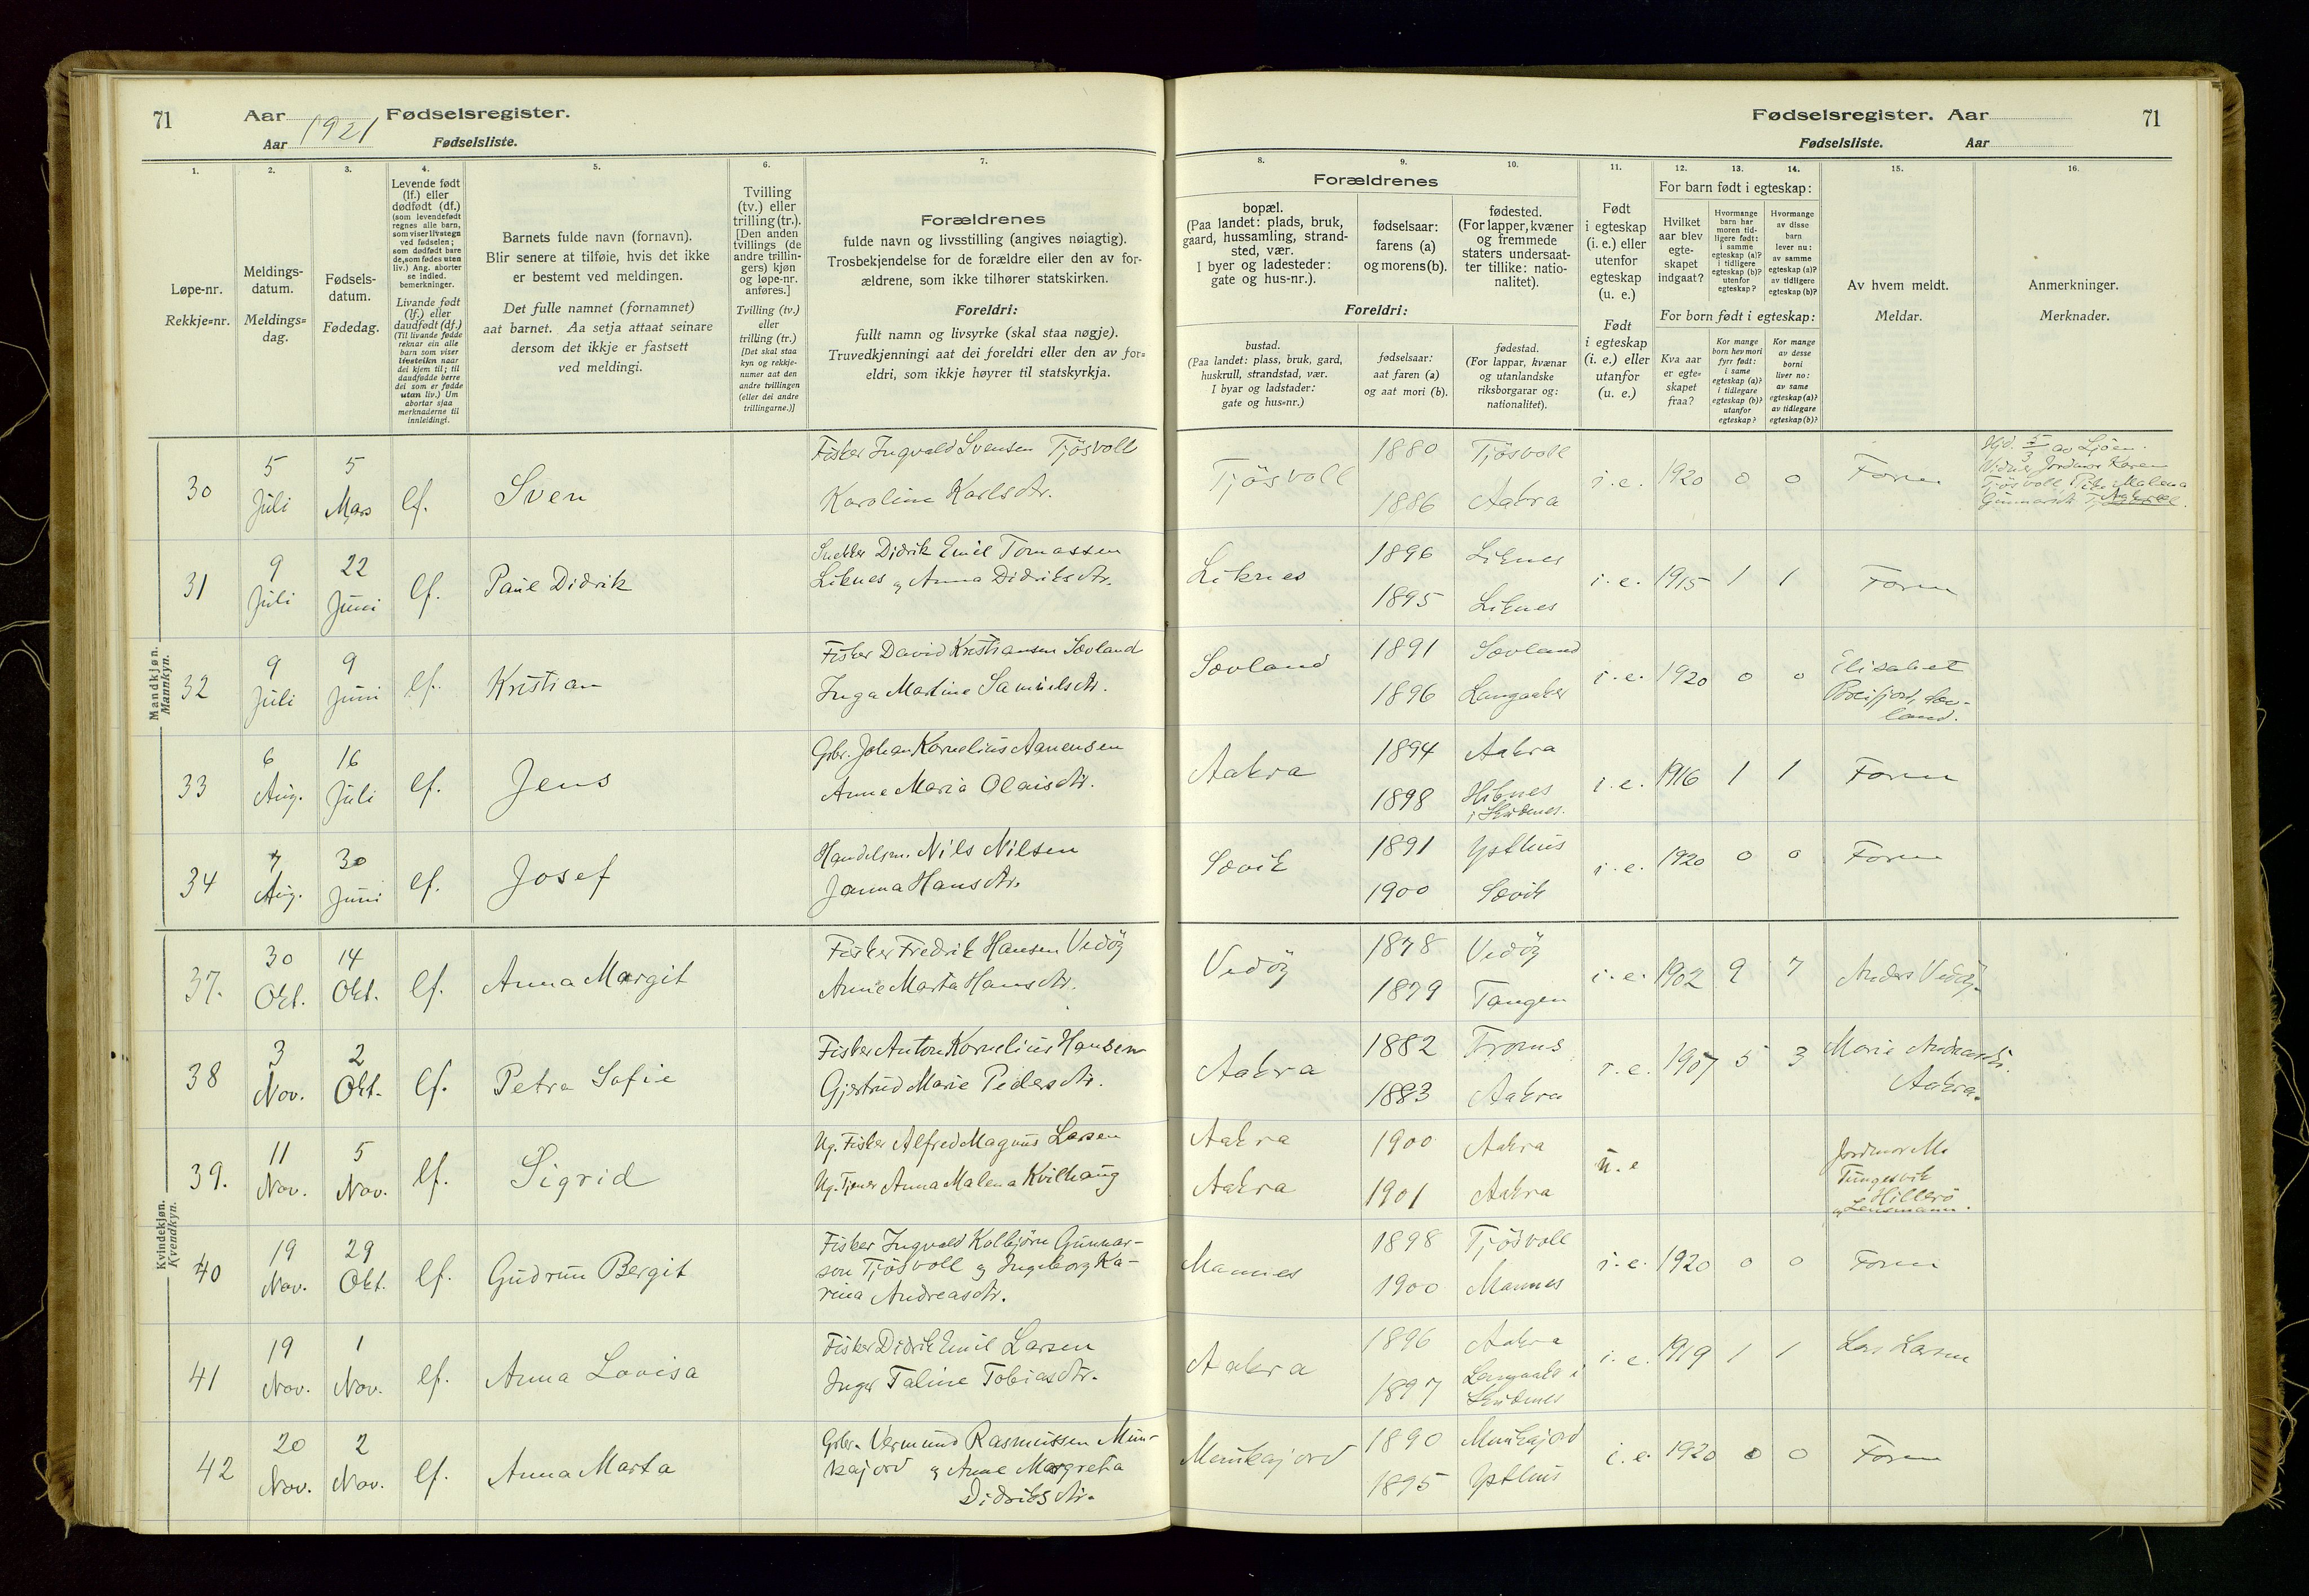 71
Aar
Fødselsregister.
1921
Aar
Fødselsliste.
1.
2.
3.
4.
5.
6.
7.
Løpe-nr.
Rekkje=nr.
Meldings-
datum.
Meldings=
dag.
Fødsels-
datum.
Fødedag.
Levende født
(lf.) eller
dødfødt (df.)
(som levendefødt
regnes alle barn,
som viser livstegn
ved fødselen;
som dødfødt bare
de, som fødes uten
liv.) Ang. aborter
se indled.
bemerkninger.
Livande født
(lf.) eller
daudfødt (df.)
(Til livande fødde
reknar ein alle
barn som viser
livsteikn naar
dei kjem til; til
daudfødde berre
dei som er fødde
utan liv.) Um
abortar sjaa
merknaderne til
innleidingi.
Barnets fulde navn (fornavn).
Blir senere at tilføie, hvis det ikke
er bestemt ved meldingen.
Det fulle namnet (fornamnet)
aat barnet. Aa setja attaat seinare
dersom det ikkje er fastsett
ved meldingi.
Tvilling
(tv.) eller
trilling (tr.).
[Den anden
tvillings (de
andre trillin-
gers) kjøn
og løpe-nr.
anføres.]
Tvilling (tv.)
eller
trilling (tr.)
[Det skal staa
kyn og rekkje-
numer aat den
andre tvillingen
(eller dei andre
trillingarne.)]
Forældrenes
fulde navn og livsstilling (angives nøiagtig).
Trosbekjendelse for de forældre eller den av for-
ældrene, som ikke tilhører statskirken.
Foreldri:
fullt namn og livsyrke (skal staa nøgje).
Truvedkjenningi aat dei foreldri eller den av for=
eldri, som ikkje høyrer til statskyrkja.
Mandkjøn.
Mannkyn.
30
5
Juli
5
Mars
lf.
Sven
Fisker Ingvald Svensen Tjösvoll
Karoline Karlsdtr.
31
9
Juli
22
Juni
lf.
Paul Didrik
Snekker Didrik Emil Tomassen
Liknes og Anna Didriksdtr.
32
9
Juli
9
Juni
lf.
Kristian
Fisker David Kristiansen Sævland
Inga Martine Samuelsdtr.
33
6
Aug.
16
Juli
lf.
Jens
Gbr. Johan Kornelius Aanensen
Anne Maria Olaisdtr.
34
7
Aug.
30
Juni
lf.
Josef
Handelsm. Nils Nilsen
Janna Hansdtr.
Kvindekjøn.
Kvendkyn.
37.
30
Okt.
14
Okt.
lf.
Anna Margit
Fisker Fredrik Hansen Vedöy
Anne Marta Hansdtr.
38
3
Nov.
2
Okt.
lf.
Petra Sofie
Fisker Anton Kornelius Hansen
Gjertrud Marie Pedersdtr.
39.
11
Nov.
5
Nov.
lf.
Sigrid
Ug. Fisker Alfred Magnus Larsen
Ug. Tjener Anna Malena Kvilhaug
40
19
Nov.
29
Okt.
lf.
Gudrun Bergit
Fisker Ingvald Kolbjörn Gunnar-
son Tjösvoll og Ingeborg Ka-
rina Andreasdtr.
41
19
Nov.
1
Nov.
lf.
Anna Lovisa
Fisker Didrik Emil Larsen
Inger Taline Tobiasdtr.
42
20
Nov.
2
Nov.
lf.
Anna Marta
Gbr. Vermund Rasmussen Mun-
kajord og Anne Margreta
Didriksdtr.
Fødselsregister. Aar
71
Fødselsliste.
Aar
8.
9.
10.
11.
12.
13.
14.
15.
16.
Forældrenes
bopæl.
(Paa landet: plads, bruk,
gaard, hussamling, strand-
sted, vær.
I byer og ladesteder:
gate og hus-nr.).
fødselsaar:
farens (a)
og morens (b).
fødested.
(For lapper, kvæner
og fremmede
staters undersaat-
ter tillike: natio-
nalitet).
Foreldri:
bustad.
(Paa landet: plass, bruk, gard,
huskrull, strandstad, vær.
I byar og ladstader:
gate og hus=nr.)
fødselsaar:
aat faren (a)
og aat mori (b).
fødestad.
(For lappar, kvænar
og utanlandske
riksborgarar og:
nationalitet).
Født
i egteskap
(i. e.) eller
utenfor
egteskap
(u. e.)
Født
i egteskap
(i. e.) eller
utanfor
(u. e.)
For barn født i egteskap:
Hvilket
aar blev
egte-
skapet
indgaat?
Hvormange
barn har
moren tid-
ligere født:
i samme
egteskap (a)?
i tidligere
egteskap (b)?
utenfor
egteskap?
Hvormange
av disse
barn
lever nu:
av samme
egteskap (a)?
av tidligere
egteskap (b)?
For born født i egteskap:
Kva aar
er egte=
skapet
fraa?
Kor mange
born hev mori
fyrr født:
i same
egteskap (a)?
i tidlegare
egteskap (b)?
utanfor
egteskap?
Kor mange
av desse
borni
liver no:
av same
egteskap (a)?
av tidlegare
egteskap (b)?
Av hvem meldt.
Meldar.
Anmerkninger.
Merknader.
Tjösvoll
1880
1886
Tjösvoll
Aakra
i. e.
1920
0
0
Faren
Tjösvoll
Malena
Liknes
1896
1895
Liknes
Liknes
i. e.
1915
1
1
Faren
Sævland
1891
1896
Sævland
Langaaker
i. e.
1920
0
0
Elisabet
Breifjord, Sæv-
land.
Aakra
1894
1898
Aakra
Hiknes
i Skudenes.
i. e.
1916
1
1
Faren
Sævik
1891
1900
Ysthus
Sævik
i. e.
1920
0
0
Faren
Vedöy
1878
1879
Vedöy
Tangen
i. e.
1902
9
7
Anders Vedöy.
Aakra
1882
1883
Froms
Aakra
i. e.
1907
5
3
Marie Andreasdtr.
Aakra.
Aakra
Aakra
1900
1901
Aakra
Aakra
u. e
Jordmor
Tungesvik
Hillerö
og Lensmann.
Mannes
1898
1900
Tjösvoll
Mannes
i. e.
1920
0
0
Faren
Aakra
1896
1897
Aakra
Langaaker i
Skudenes
i. e.
1919
1
1
Lars Larsen
Munkajord
1890
1895
Munkajord
Ysthus
i. e.
1920
0
0
Faren